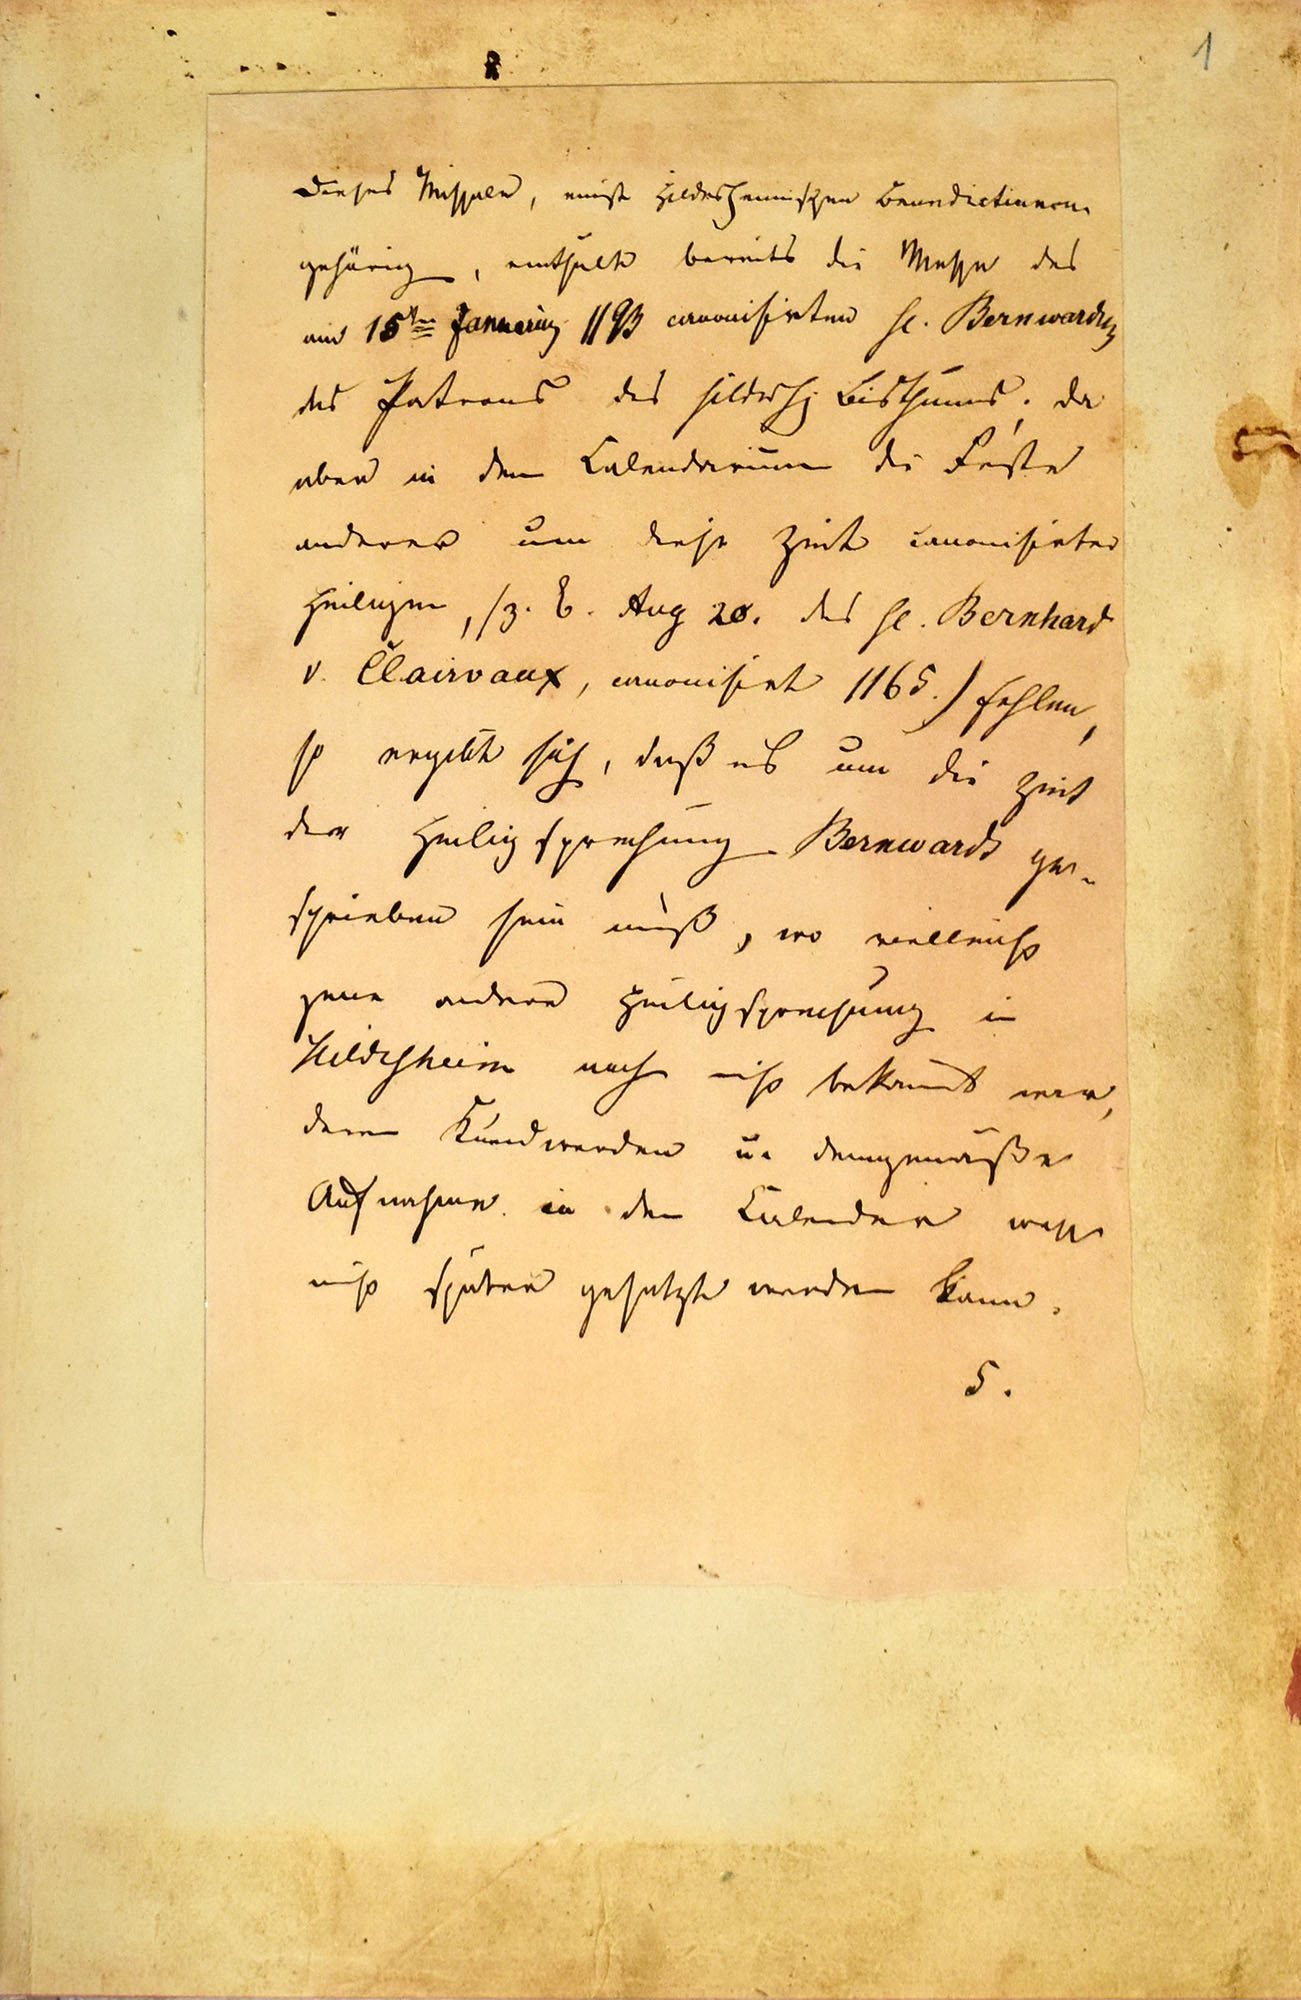 1
Dieses Missale, einst Hildesheimischen Benedictinern
gehörig, enthält bereits die Messe des
am 15ten Januarius 1193 canonisirten hl. Bernwardus
des Patrons des hildesh. Bisthums; da
aber in dem Calendarium die Feste
anderer um diese Zeit canonisirter
Heiligen, (z. B. Aug 20. des hl. Bernhard
v. Clairvaux, canonisirt 1165.) fehlen,
so ergibt sich, daß es um die Zeit
der Heiligsprechung Bernwards ge-
schrieben sein muß, wo vielleicht
jene andere Heiligsprechung in
Hildesheim noch nicht bekannt war,
deren Kundwerden u. demgemäße
Aufnahme in den Calender
nicht später gesetzt werden kann.
S.